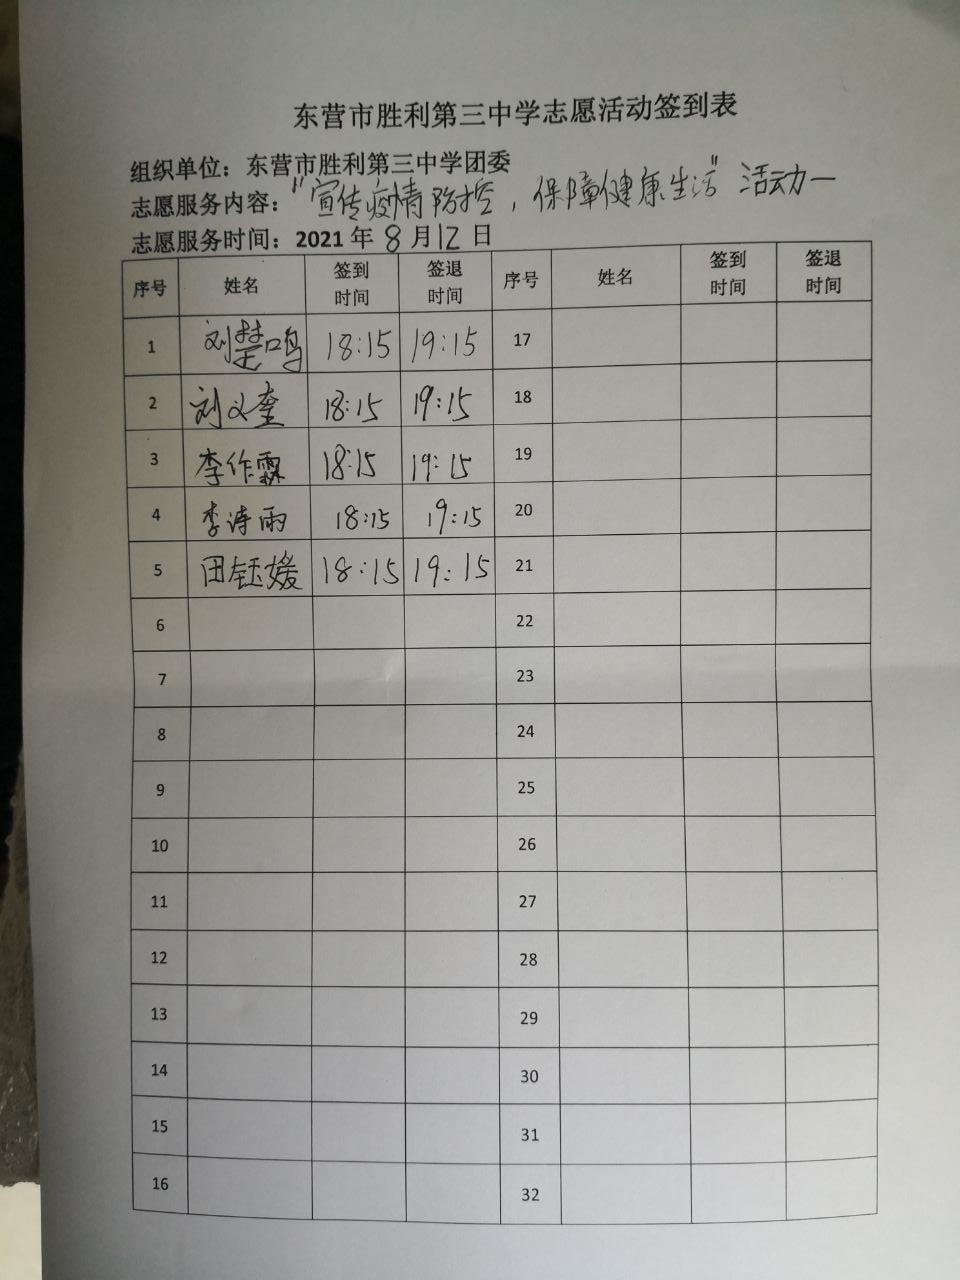 东营市胜利第三中学志愿活动签到表
组织单位：东营市胜利第三中学团委
志愿服务内容："宣传疫情防控，保障健康生活"活动一
志愿服务时间：2021年8月12日
序号 姓名 签到时间 签退时间 序号 姓名 签到时间 签退时间
1 刘楚鸣 18:15 19:15 17
2 刘义奎 18:15 19:15 18
3 李作霖 18:15 19:15 19
4 李诗雨 18:15 19:15 20
5 田钰媛 18:15 19:15 21
6 22
7 23
8 24
9 25
10 26
11 27
12 28
13 29
14 30
15 31
16 32